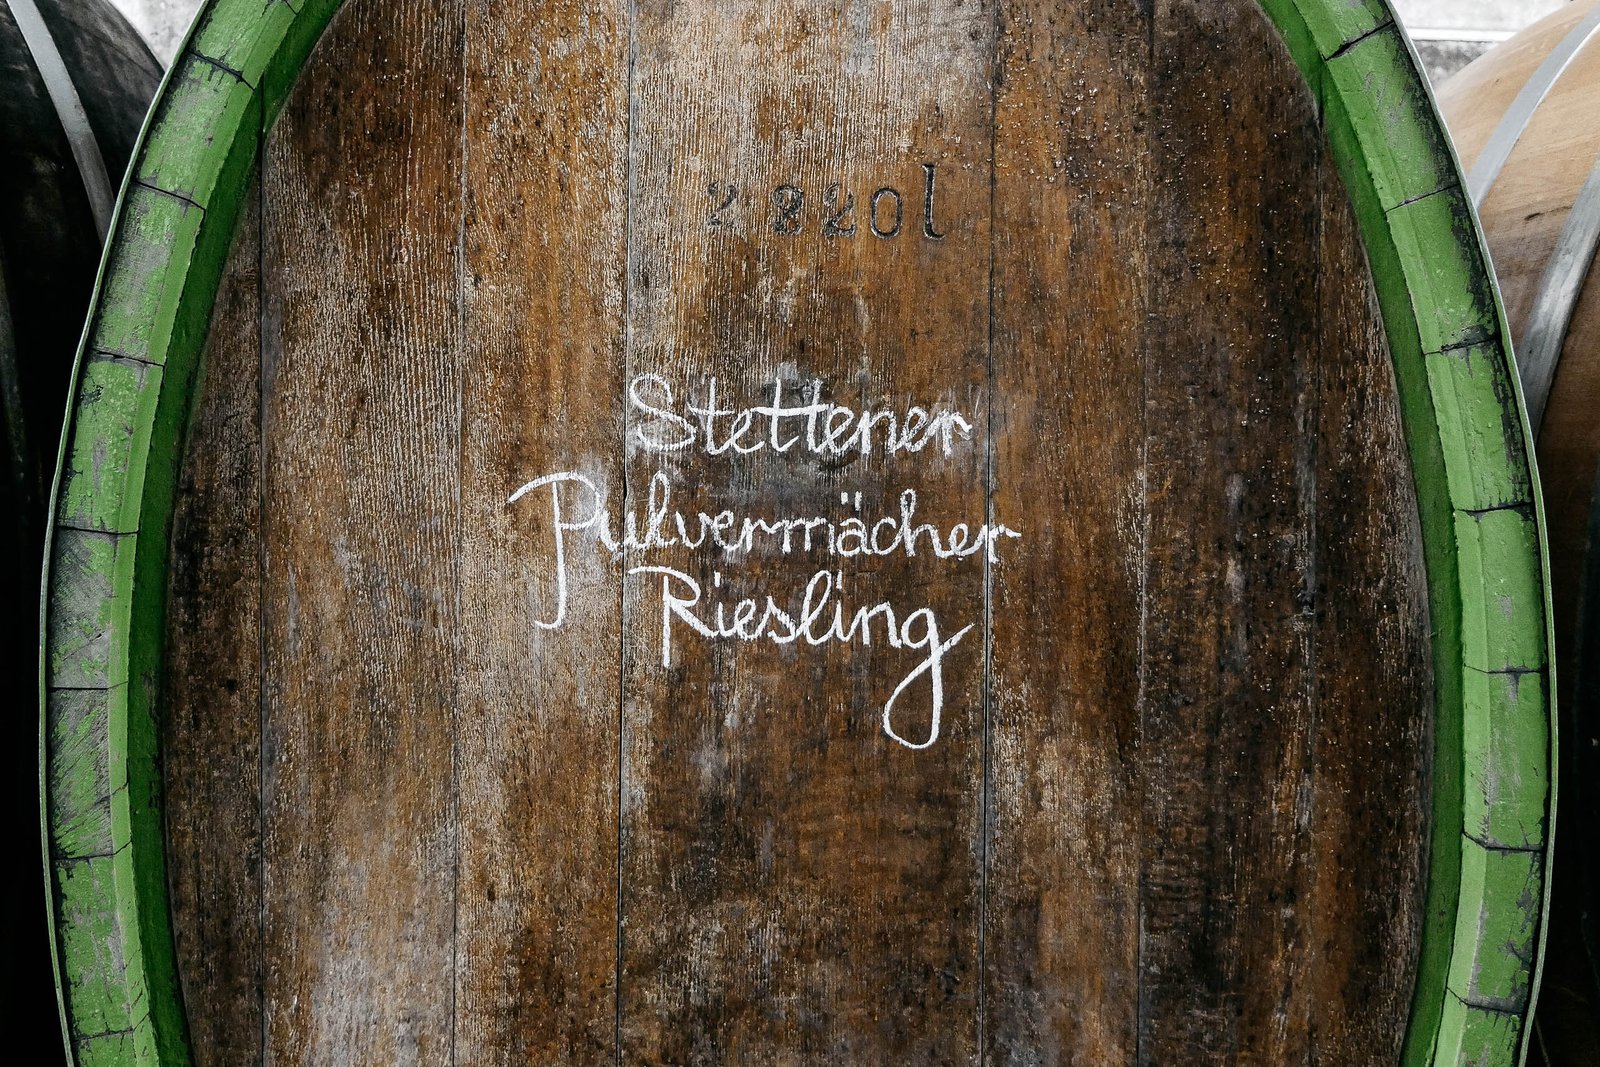 2820l
Stettener
Pulvermächer
Riesling